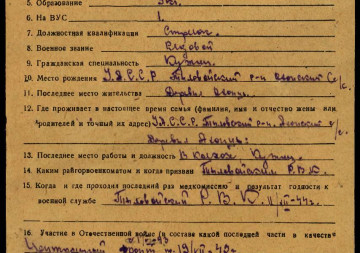 5. Образование 3 кл.
6. На ВУС 1.
7. Должностная квалификация Стрелок
8. Военное звание Рядовой
9. Гражданская специальность Кузнец
10. Место рождения У.А.С.С.Р. Тыловайский р-н
11. Последнее место жительства Деревня
12. Где проживает в настоящее время семья (фамилия, имя и отчество жены или
родителей и точный их адрес) У.А.С.С.Р. Тыловайский р-н.
Деревня
13. Последнее место работы и должность В Колхоз Кузнец
14. Каким райгорвоенкоматом и когда призван Тыловайский Р.В.К.
15. Когда и где проходил последний раз медкомиссию и результат годности к
военной службе Тыловайский Р.В.К.
16. Участие в Отечественной войне (в составе какой последней части и в качестве
фронт